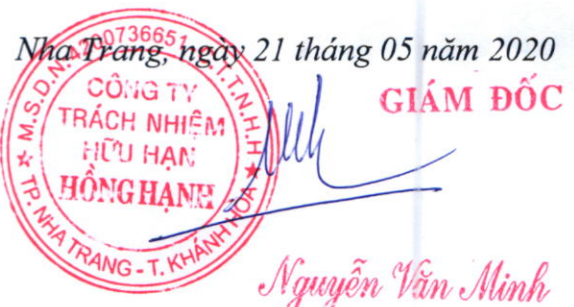 Nha Trang, ngày 21 tháng 05 năm 2020
GIÁM ĐỐC
M.S.D.N: 4200736651 - C.T.T.N.H.H
CÔNG TY
TRÁCH NHIỆM
HỮU HẠN
HỒNG HẠNH
TP. NHA TRANG - T. KHÁNH HÒA
Nguyễn Văn Minh